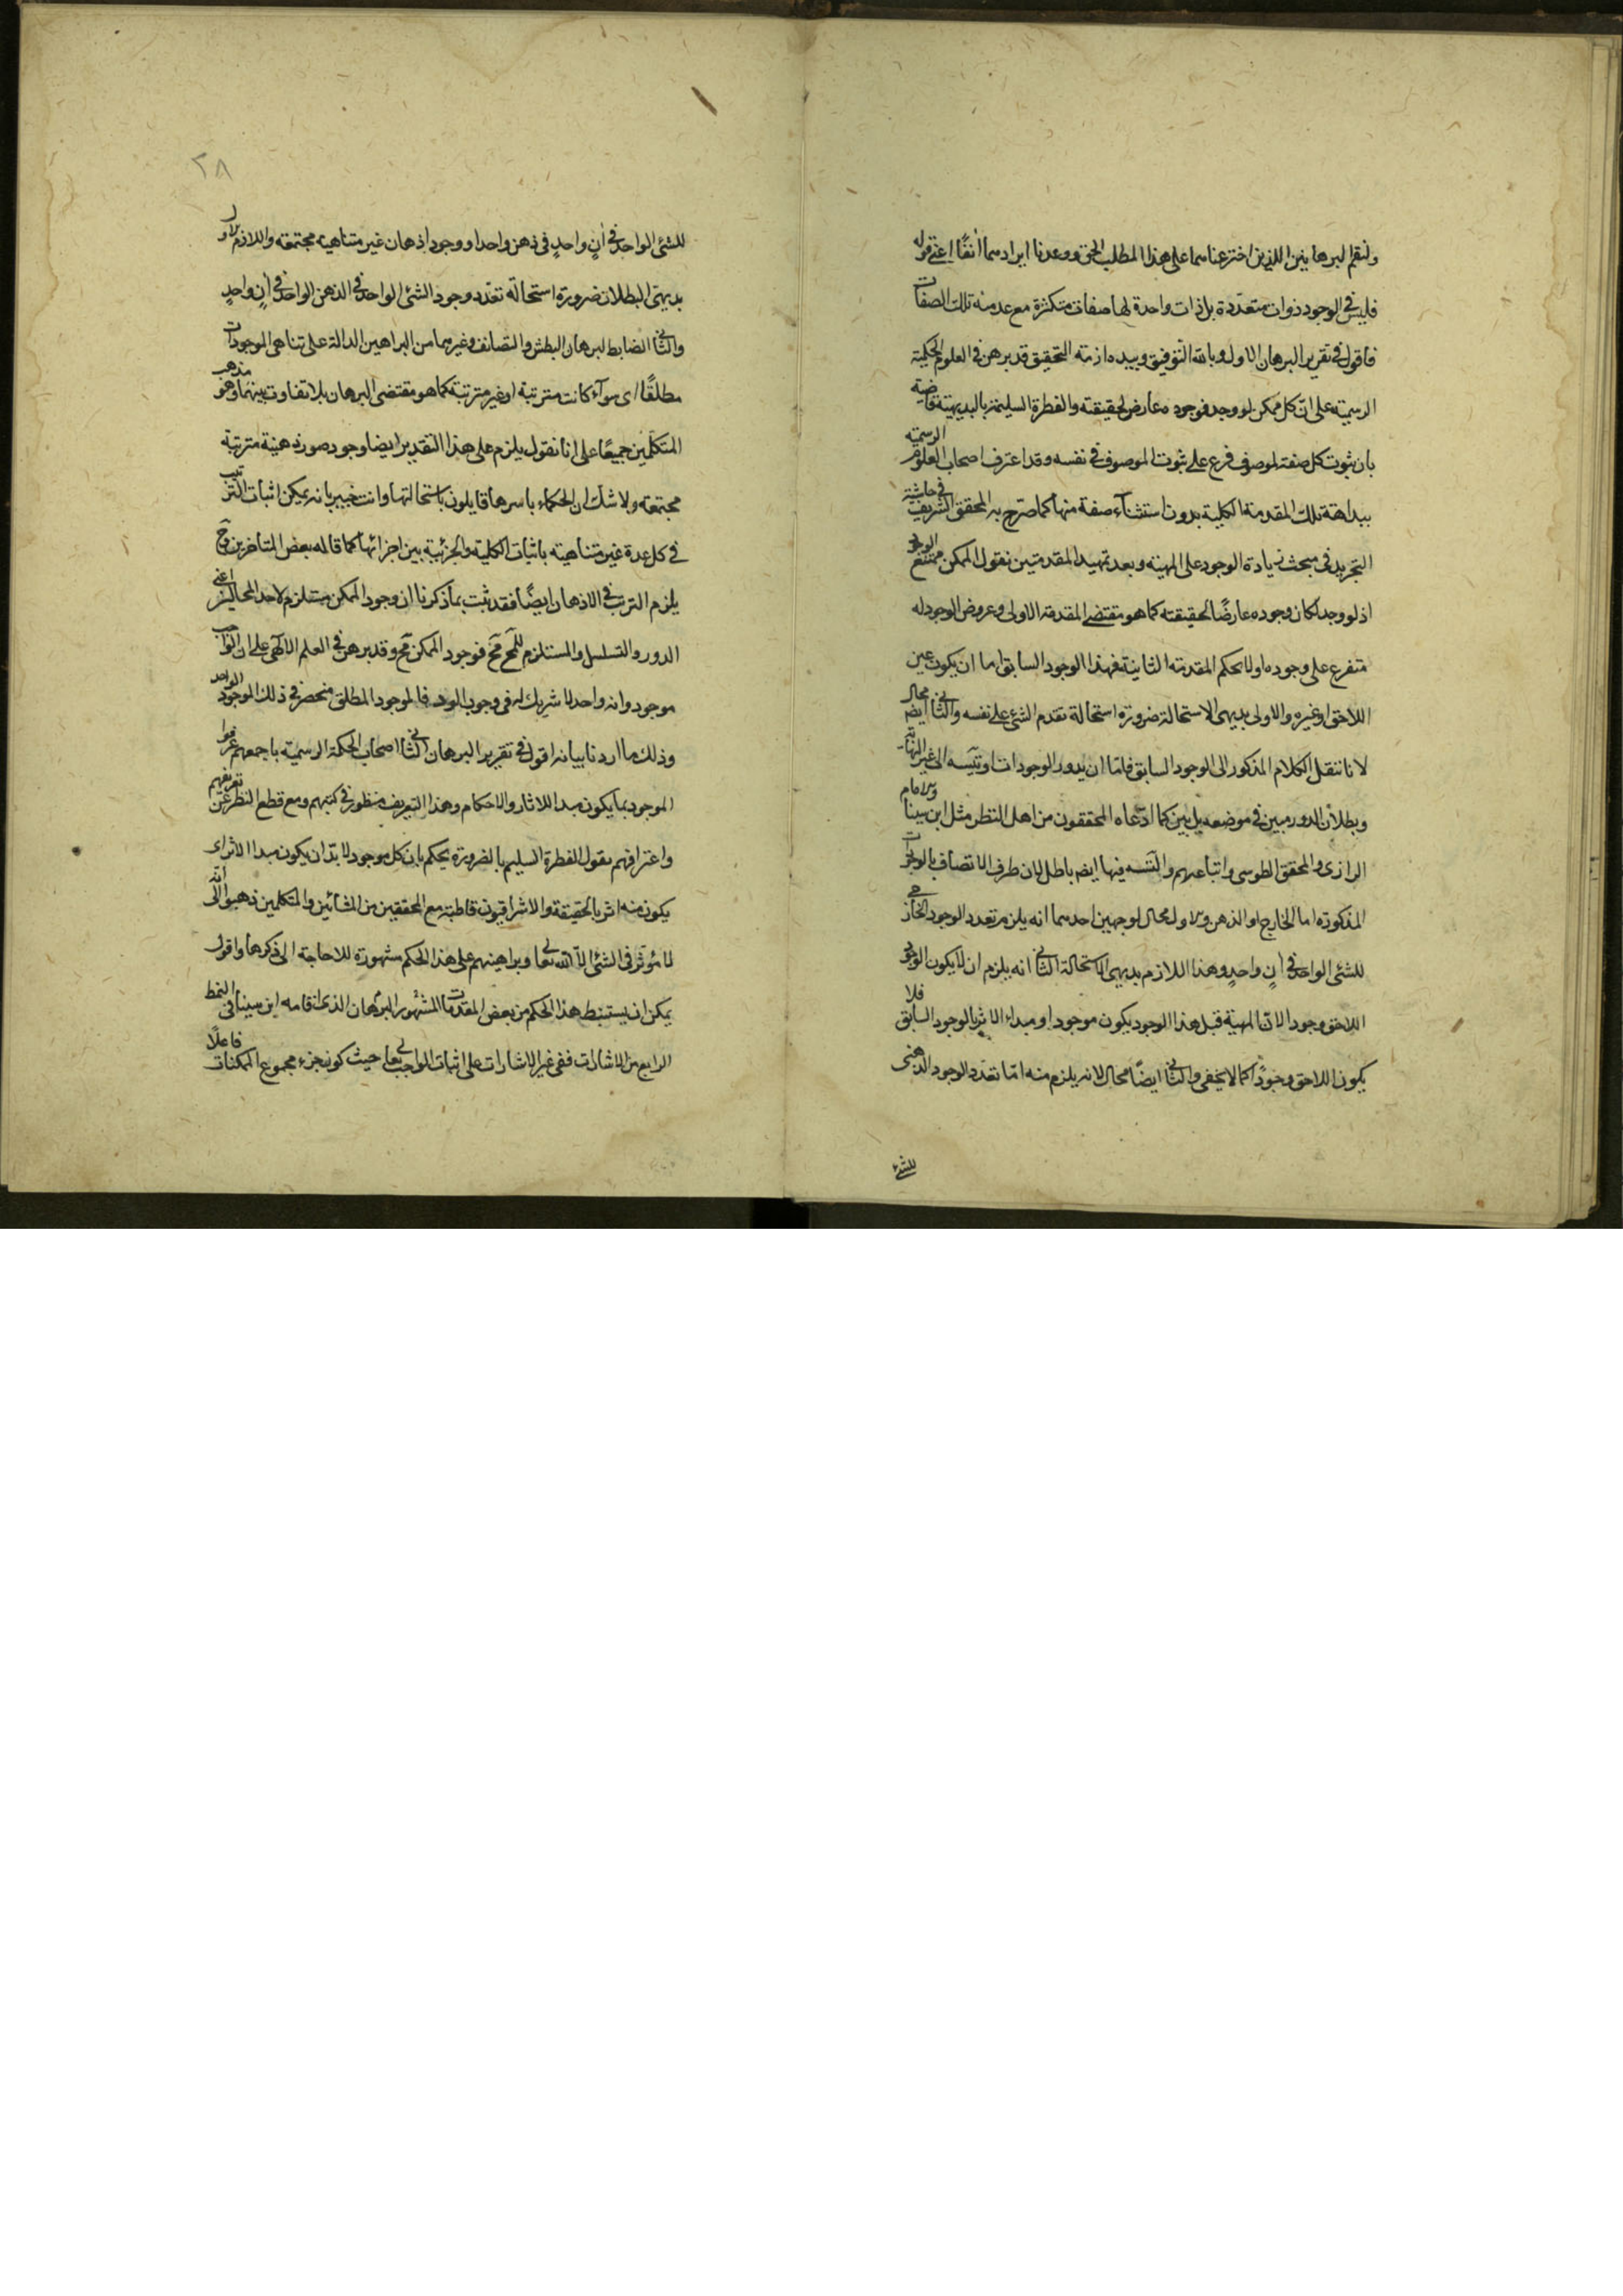 ولنقم البرهانين اللذين اخترعناهما على هذا المطلب الحق ووعدنا ايرادهما آنفًا اعنى قوله
فليس فى الوجود ذوات متعددة بل ذات واحدة لها صفات متكثرة مع عدمنه تلك الصفات
فاقول فى تقرير البرهان الاول وبالله التوفيق وبيده ازمة التحقيق قد برهن فى العلوم الحكمية
الرسمية على ان كل ممكن لو وجد فوجوده عارض لحقيقته والفطرة السليمة بالبديهية قاضية
بان ثبوت كل صفة لموصوف فرع على ثبوت الموصوف فى نفسه وقد اعترف اصحاب العلوم الرسمية
ببداهة تلك المقدمة الكلية بدون استثناء صفة منها كما صرح به المحقق الشريف فى حاشية
التجريد فى مبحث زيادة الوجود على المهية وبعد تمهيد المقدمتين نقول الممكن ممتنع الوجود
اذ لو وجد لكان وجوده عارضًا لحقيقته كما هو مقتضى المقدمة الاولى وعروض الوجود له
متفرع على وجوده اولا بحكم المقدمة الثانية فهذا الوجود السابق اما ان يكون عين
اللاحق او غيره والاولى بديهى الاستحالة ضرورة استحالة تقدم الشئ على نفسه والثانى ايضه محال
لانا ننقل الكلام المذكور الى الوجود السابق فاما ان يدور الوجودات او يتسه الى غير النهاية
وبطلان الدور مبين فى موضعه بل بين كما ادعاه المحققون من اهل النظر مثل ابن سينا والامام
الرازى والمحقق الطوسى واتباعهم والتسه فيها ايضه باطل لان ظرف الاتصاف بالوجودات
المذكورة اما الخارج او الذهن والاول محال لوجهين احدهما انه يلزم تعدد الوجود الخارجى
للشئ الواحد فى آن واحد وهذا اللازم بديهى الاستحالة الثانى انه يلزم ان لا يكون الوجود
اللاحق وجودا لان المهية قبل هذا الوجود يكون موجودا ومبداء الاثر بالوجود السابق فلا
يكون اللاحق وجودًا كما لا يخفى والثانى ايضًا محال لانه يلزم منه اما تعدد الوجود الذهنى
للشئ
٢٨
للشئ الواحد فى آن واحد فى ذهن واحد او وجود اذهان غير متناهية مجتمعة واللازم الاول
بديهى البطلان ضرورة استحالة تعدد وجود الشئ الواحد فى الذهن الواحد فى آن واحد
والثانى ايضا بط لبرهان التطبيق والتضايف وغيرهما من البراهين الدالة على تناهى الموجودات
مطلقًا اى سوآء كانت مترتبة او غير مترتبة كما هو مقتضى البرهان بلا تفاوت بينهما وهو مذهب
المتكلمين جميعًا على انا نقول يلزم على هذا التقدير ايضا وجود صور ذهنية مترتبة
مجتمعة ولا شك ان الحكماء باسرها قايلون باستحالتها وانت خبير بانه يمكن اثبات الترتيب
فى كل عدة غير متناهية باثبات الكلية والجزئية بين اجزائها كما قاله بعض المتاخرين وح
يلزم الترتب فى الاذهان ايضًا فقد ثبت بما ذكرنا ان وجود الممكن مستلزم لاحد المحالين اعنى
الدور والتسلسل والمستلزم للمح مح فوجود الممكن مح وقد برهن فى العلم الالهى على ان الواجب
موجود وانه واحد لا شريك له فى وجوب الوجود فالموجود المطلق منحصر فى ذلك الموجود الواحد
وذلك ما اردنا بيانه اقول فى تقرير البرهان الثانى اصحاب الحكمة الرسمية باجمعهم عرفوا
الموجود بما يكون مبدا للاثار والاحكام وهذا التعريف منظور فى كتبهم ومع قطع النظر عن تعريفهم
واعترافهم نقول الفطرة السليم بالضرورة يحكم بان كل موجود لا بد ان يكون مبدا الاثر اى
يكون منه اثر بالحقيقة والاشراقيون قاطبة مع المحققين من المشائين والمتكلمين ذهبوا الى انه
لا مؤثر فى الشئ الا الله تعالى وبراهينهم على هذا الحكم مشهورة لا حاجة الى ذكرها واقول
يمكن ان يستنبط هذا الحكم من بعض المقدمات المشهور البرهان الذى اقامه ابن سينا فى النمط
الرابع من الاشارات على اثبات الواجب تعالى حيث كون جزء مجموع الممكنات فاعلًا